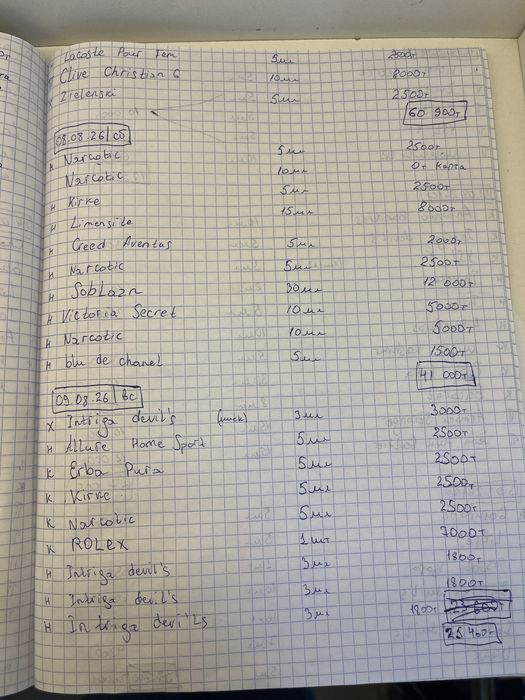 Lacoste Pour Fem 5мл 2500т
Clive Christian G 10мл 8000т
х Zielenski 5мл 2500т
60 900т
08.08.26 сб
н Narcotic 5мл 2500т
Narcotic 10мл От карта
н Kirke 5мл 2500т
н Limensite 15мл 8000т
Creed Aventus 5мл 2000т
н Narcotic 5мл 2500т
н SobLazn 30мл 12 000т
н Victoria Secret 10мл 5000т
н Narcotic 10мл 5000т
н blu de chanel 5мл 1500т
41 000т
09.08.26 вс
х Intriga devil's 3мл 3000т
н Allure Home Sport 5мл 2500т
к Erba Pura 5мл 2500т
к Kirke 5мл 2500т
к Narcotic 5мл 2500т
к ROLEX 1шт 7000т
н Intriga devil's 3мл 1800т
н Intriga devil's 3мл 1800т
н Intriga devil's 3мл 1800т
25 400т